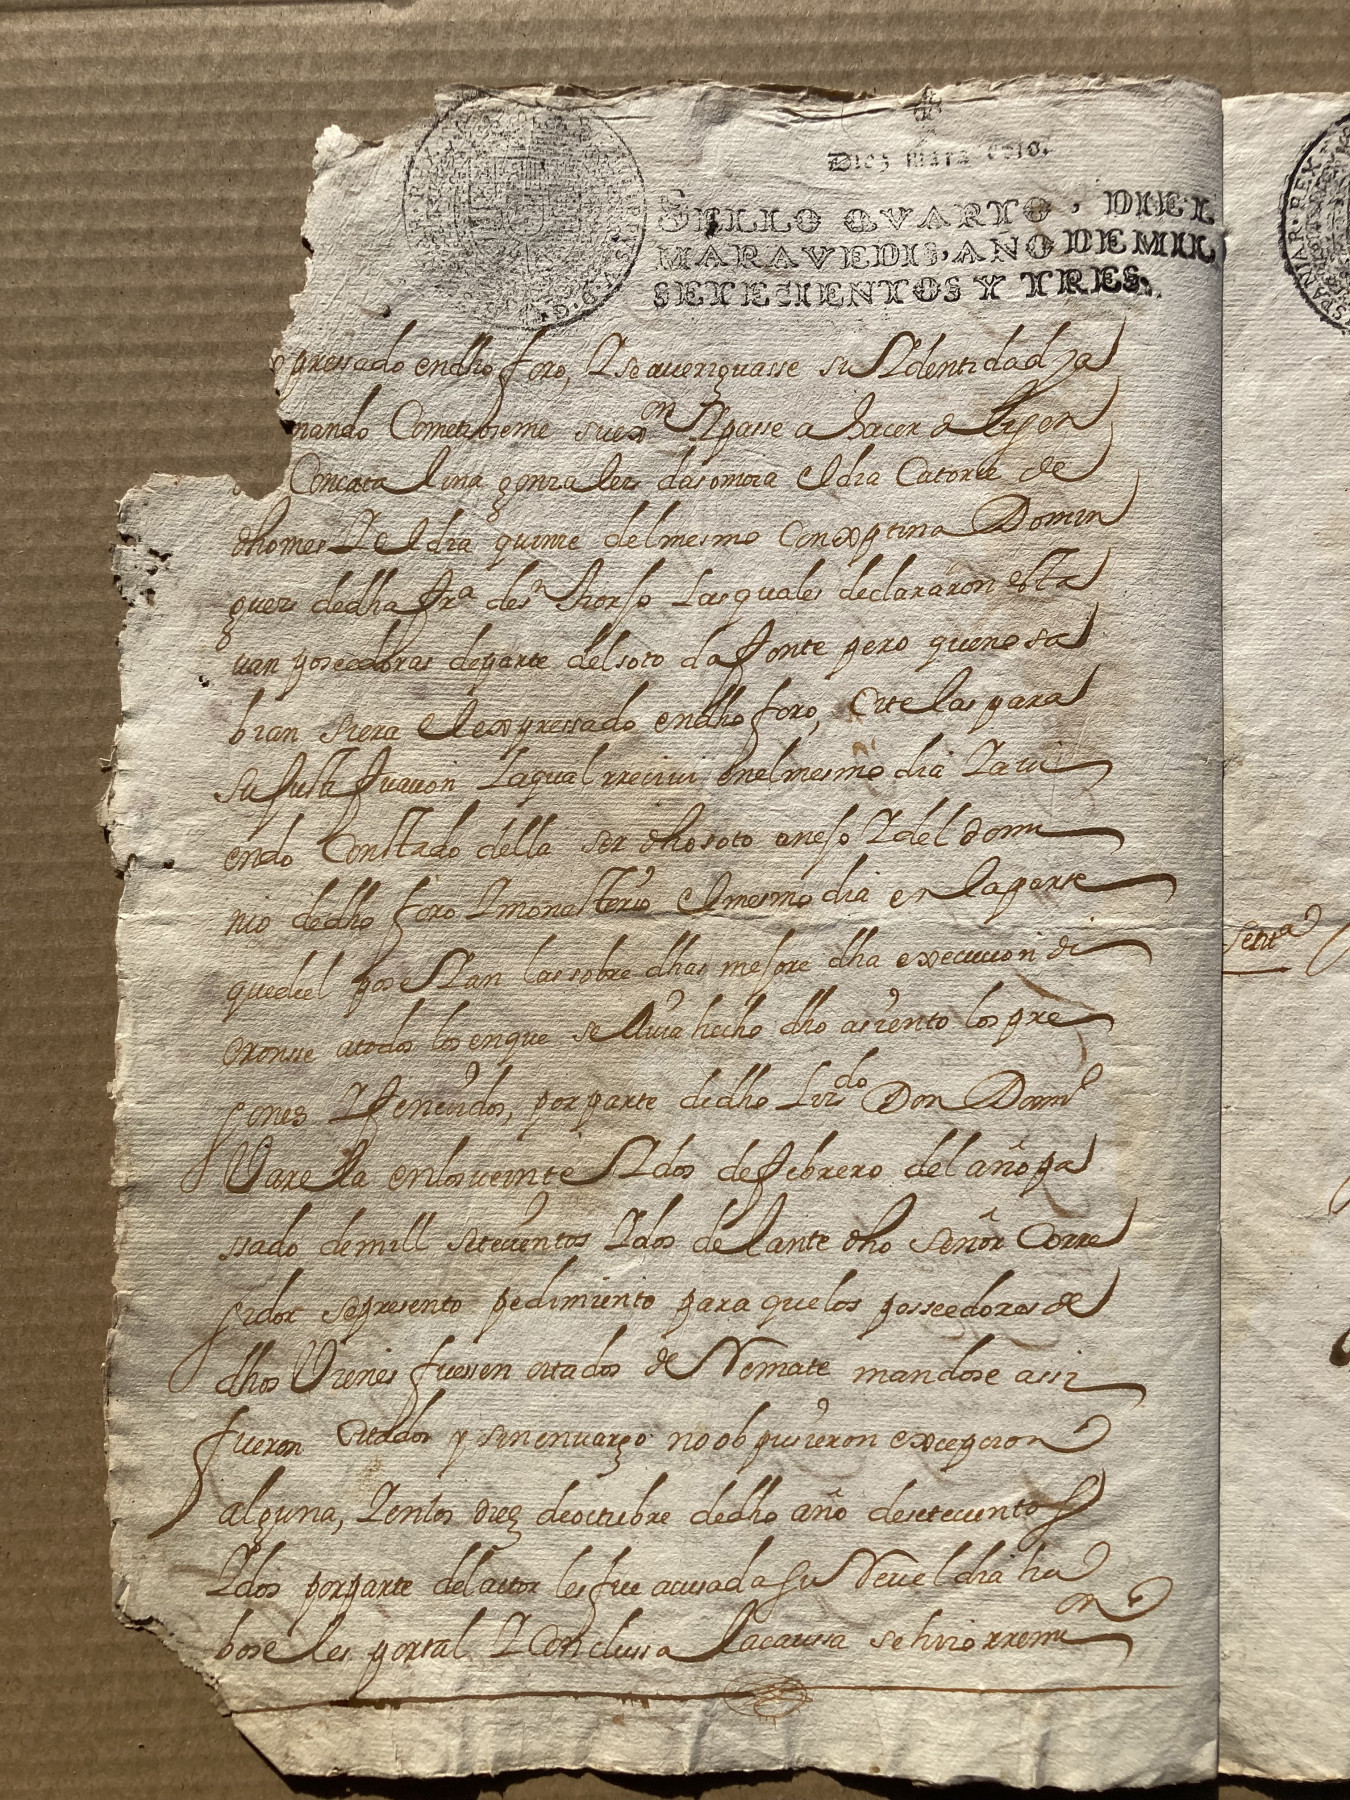 Diez maravedis.
SELLO QVARTO, DIEZ
MARAVEDIS, AÑO DE MIL
SETECIENTOS Y TRES.
pressado en dho foro, Y se aueriguasse su Ydentidad ya
mando Cometioseme su exon Y passe a hacer
Concatalina gonzalez dasomoza el dia Catorce de
dho mes Y el dia quince del mesmo Con exptina Domin
guez de dha fra de sn Jiorjo Las quales declararon esta
uan poseedoras de parte del soto da fonte pero que no sa
bian si era el expressado en dho foro, Cite las para
su justificacion La qual rreciui en el mesmo dia Y aui
endo Constado della ser dho soto anejo Y del domi
nio de dho foro Y monasterio el mesmo dia en la parte
que del posseian las sobre dhas mejore dha execucion di
eronse a todos los en que se auia hecho dho asiento los pre
gones Y fenecidos, por parte de dho Lizdo Don Domo
Varela en los veinte Y dos de febrero del año pa
ssado de mill setecientos Y dos delante dho señor Corre
gidor se presento pedimiento para que los posseedores de
dhos Vienes fuessen citados de Remate mandose assi
fueron Citados y sin enuargo no obpusieron excepcion
alguna, Y en los diez de octubre de dho año de setecientos
Y dos por parte del actor les fue acusada su Reueldia hu
bose les por tal Y Conclussa la caussa se hizo rremi
on
Sentta